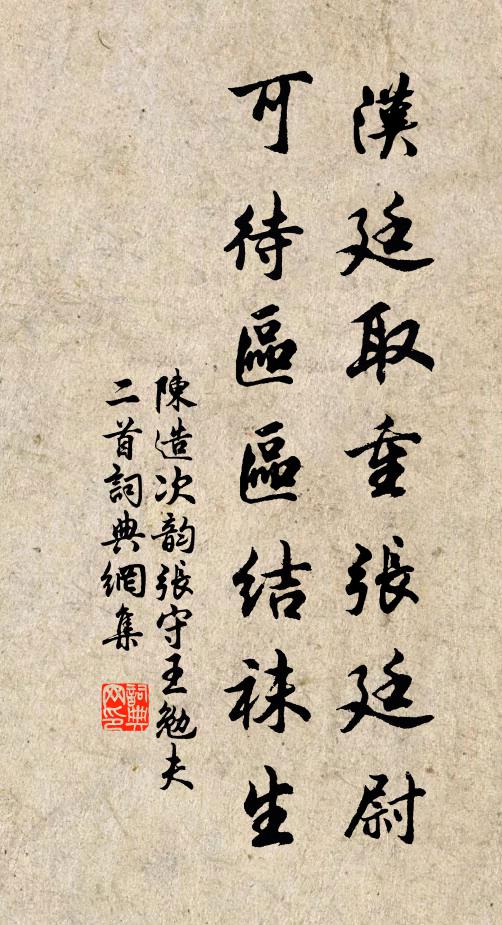 漢廷取重張廷尉
可待區區結袜生
陳造次韵張守王勉夫
二首詞典網集
詞典网印